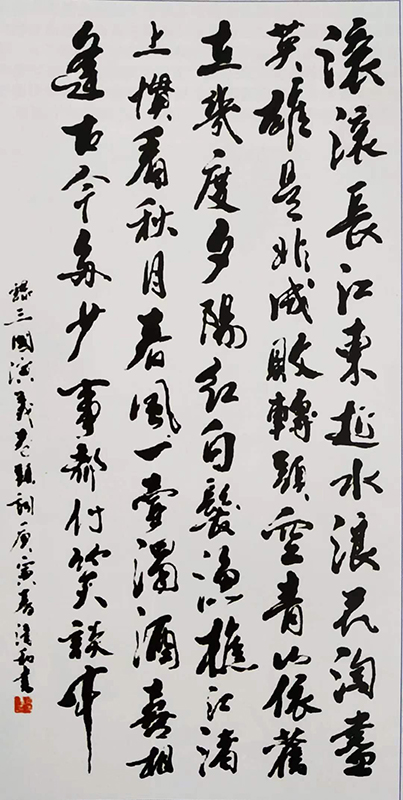 滚滚長江東逝水浪花淘盡
英雄是非成敗轉頭空青山依舊
在幾度夕陽紅白髮漁樵江渚
上慣看秋月春風一壺濁酒喜相
逢古今多少事都付笑談中
錄三國演義卷頭詞庚寅春書